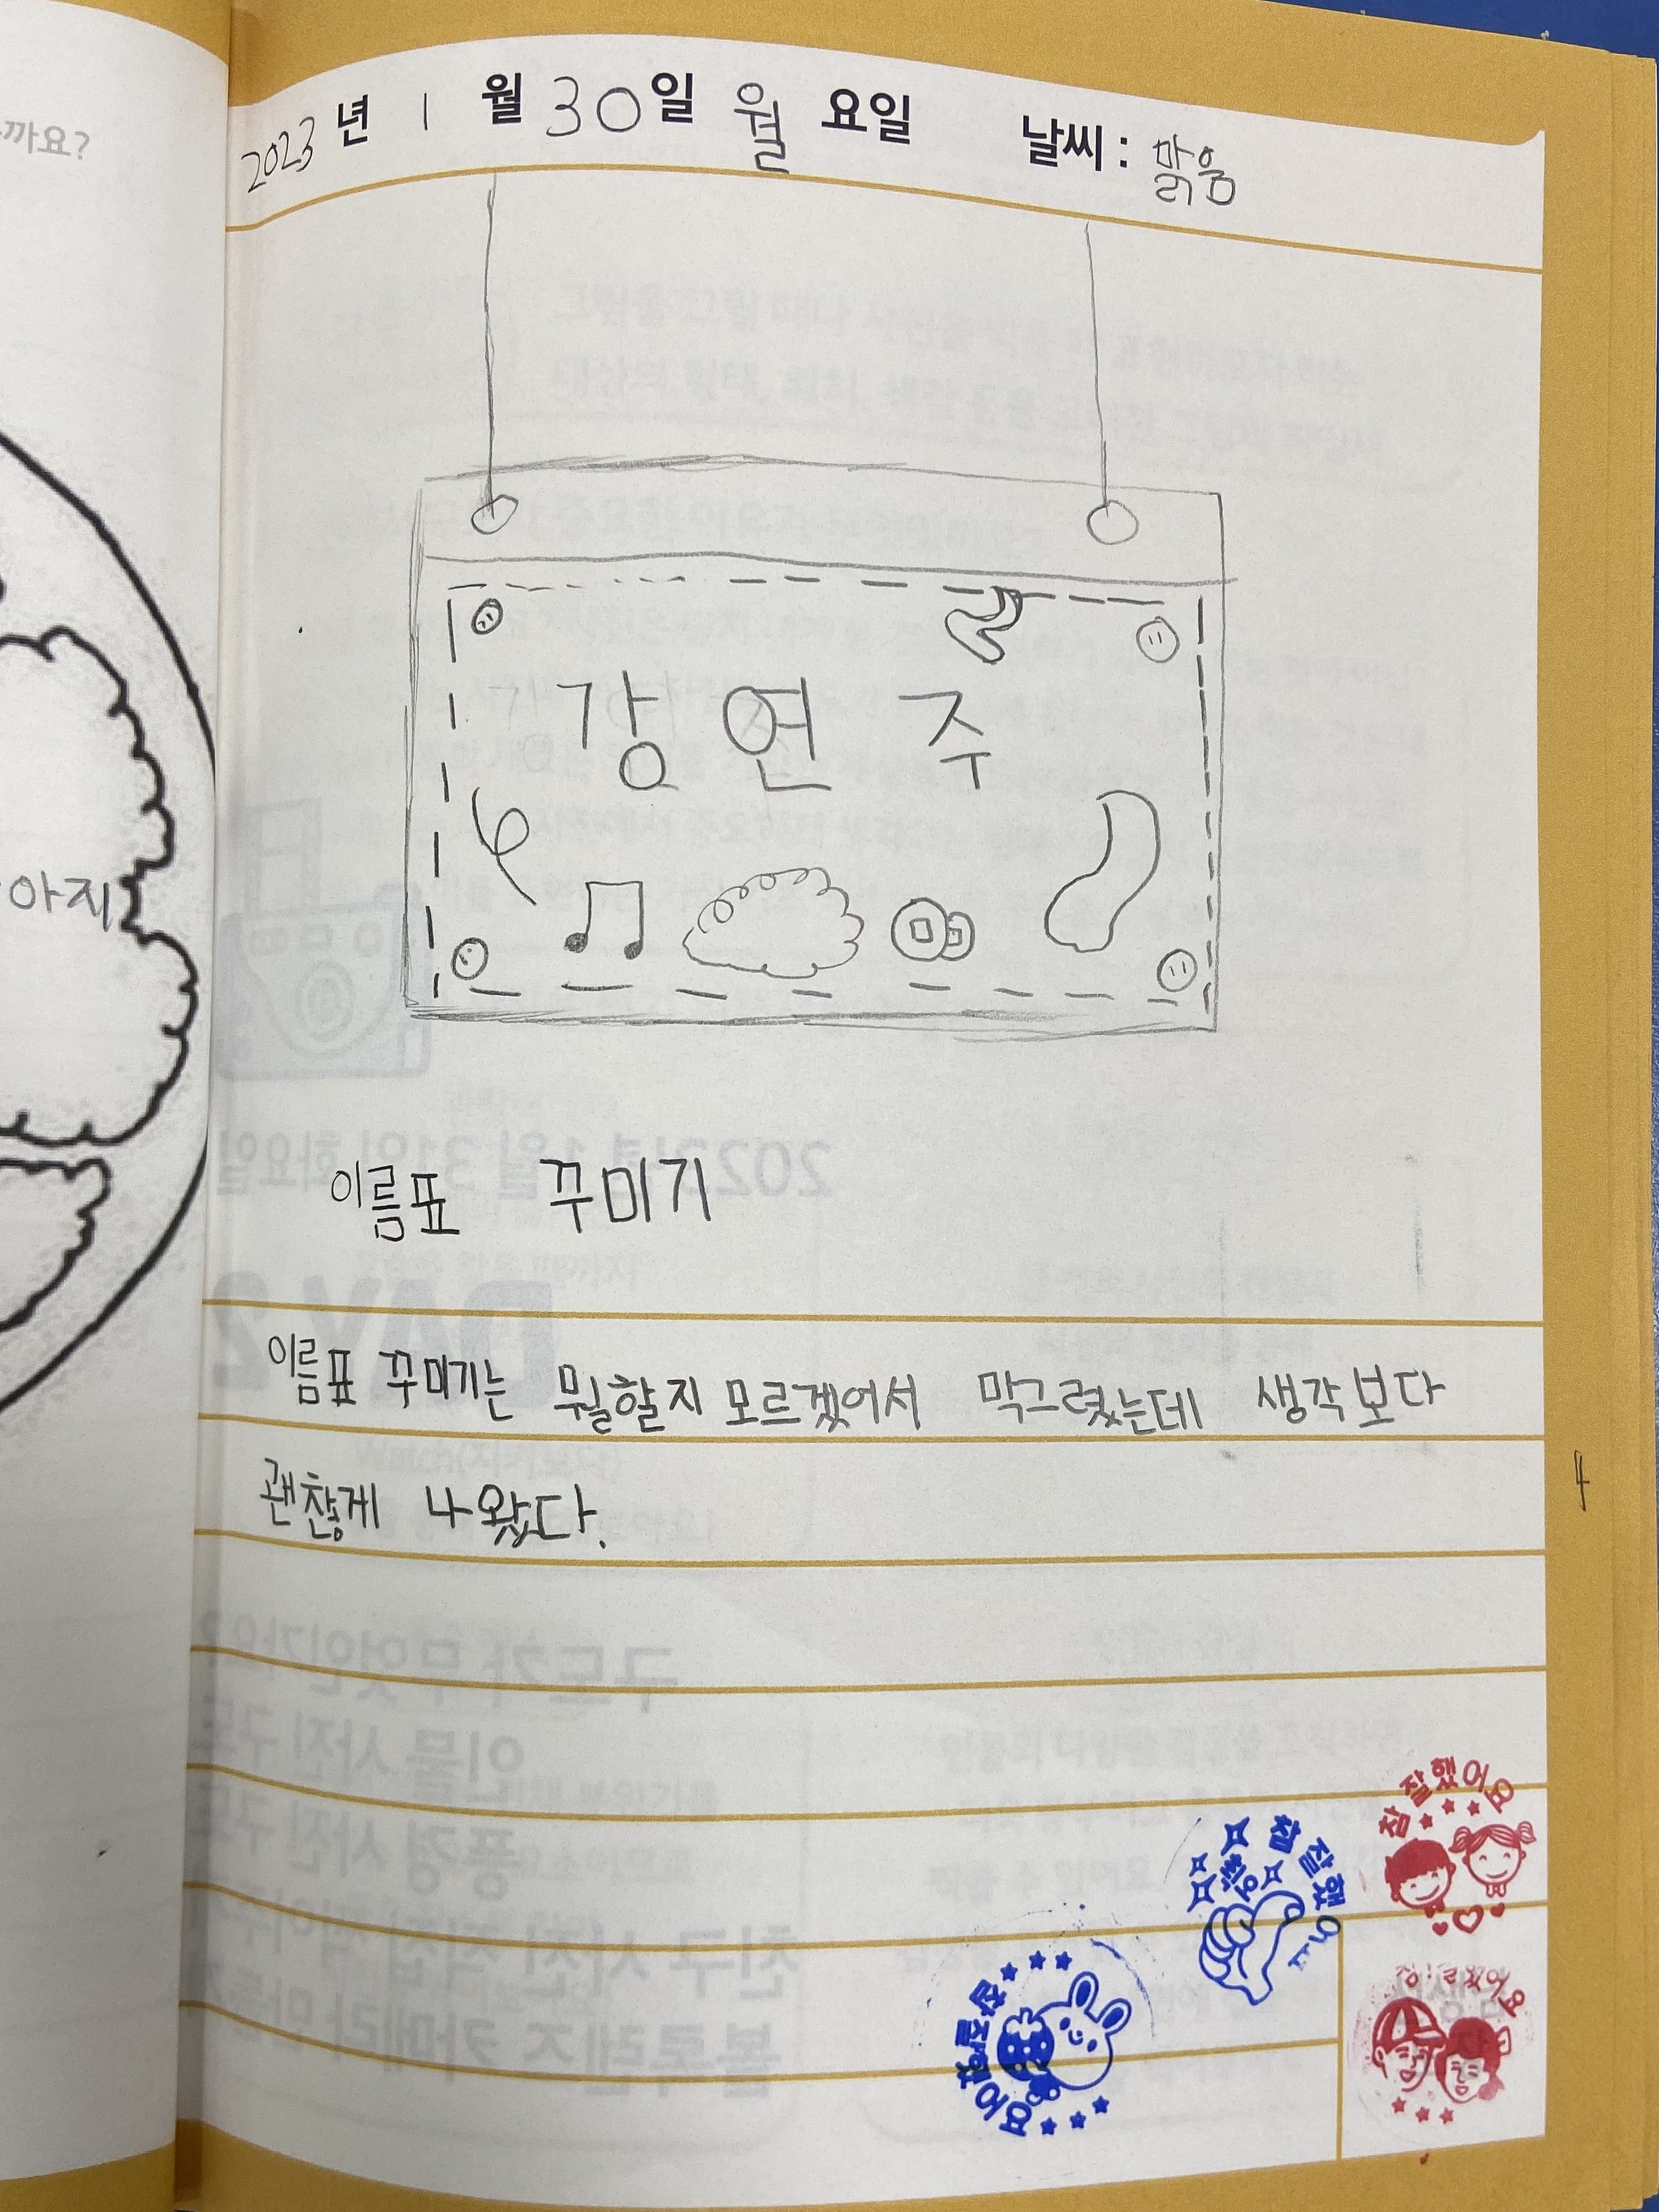 까요?
2023년 1월 30일 월요일 날씨: 맑음
강연주
아지
이름표 꾸미기
이름표 꾸미기는 뭘할지 모르겠어서 막그렸는데 생각보다
괜찮게 나왔다.
4
참 잘했어요
참 잘했어요
참잘했어요